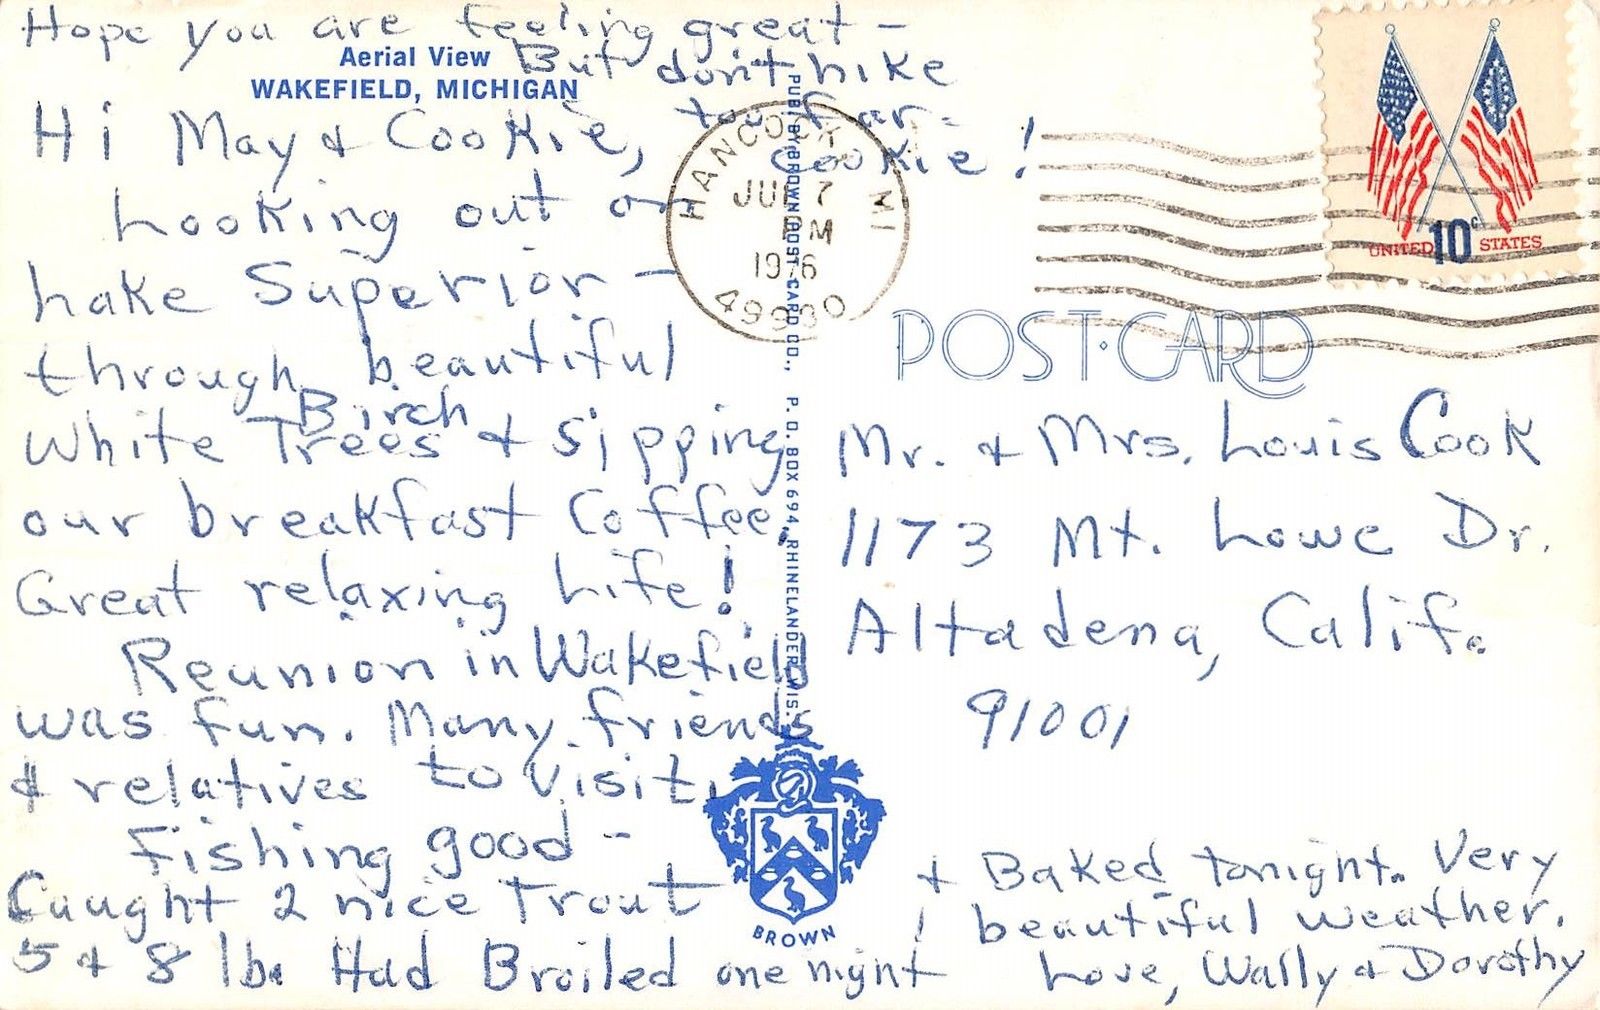 Hope you are feeling great -
But don't hike
too far -
Cookie!
Aerial View
WAKEFIELD, MICHIGAN
Hi May & Cookie,
Looking out on
Lake Superior -
through beautiful
White Birch Trees & sipping
our breakfast Coffee.
Great relaxing Life!
Reunion in Wakefield
was fun. Many friends
& relatives to visit.
Fishing good -
Caught 2 nice Trout
5 & 8 lb. Had Broiled one night
& Baked tonight. Very
beautiful weather.
Love, Wally & Dorothy
PUBL. BY BROWN POST CARD CO., P.O. BOX 694, RHINELANDER, WIS.
BROWN
HANCOCK, MI
JUL 7
PM
1976
49930
10c
UNITED STATES
POST·CARD
Mr. & Mrs. Louis Cook
1173 Mt. Lowe Dr.
Altadena, Calif.
91001